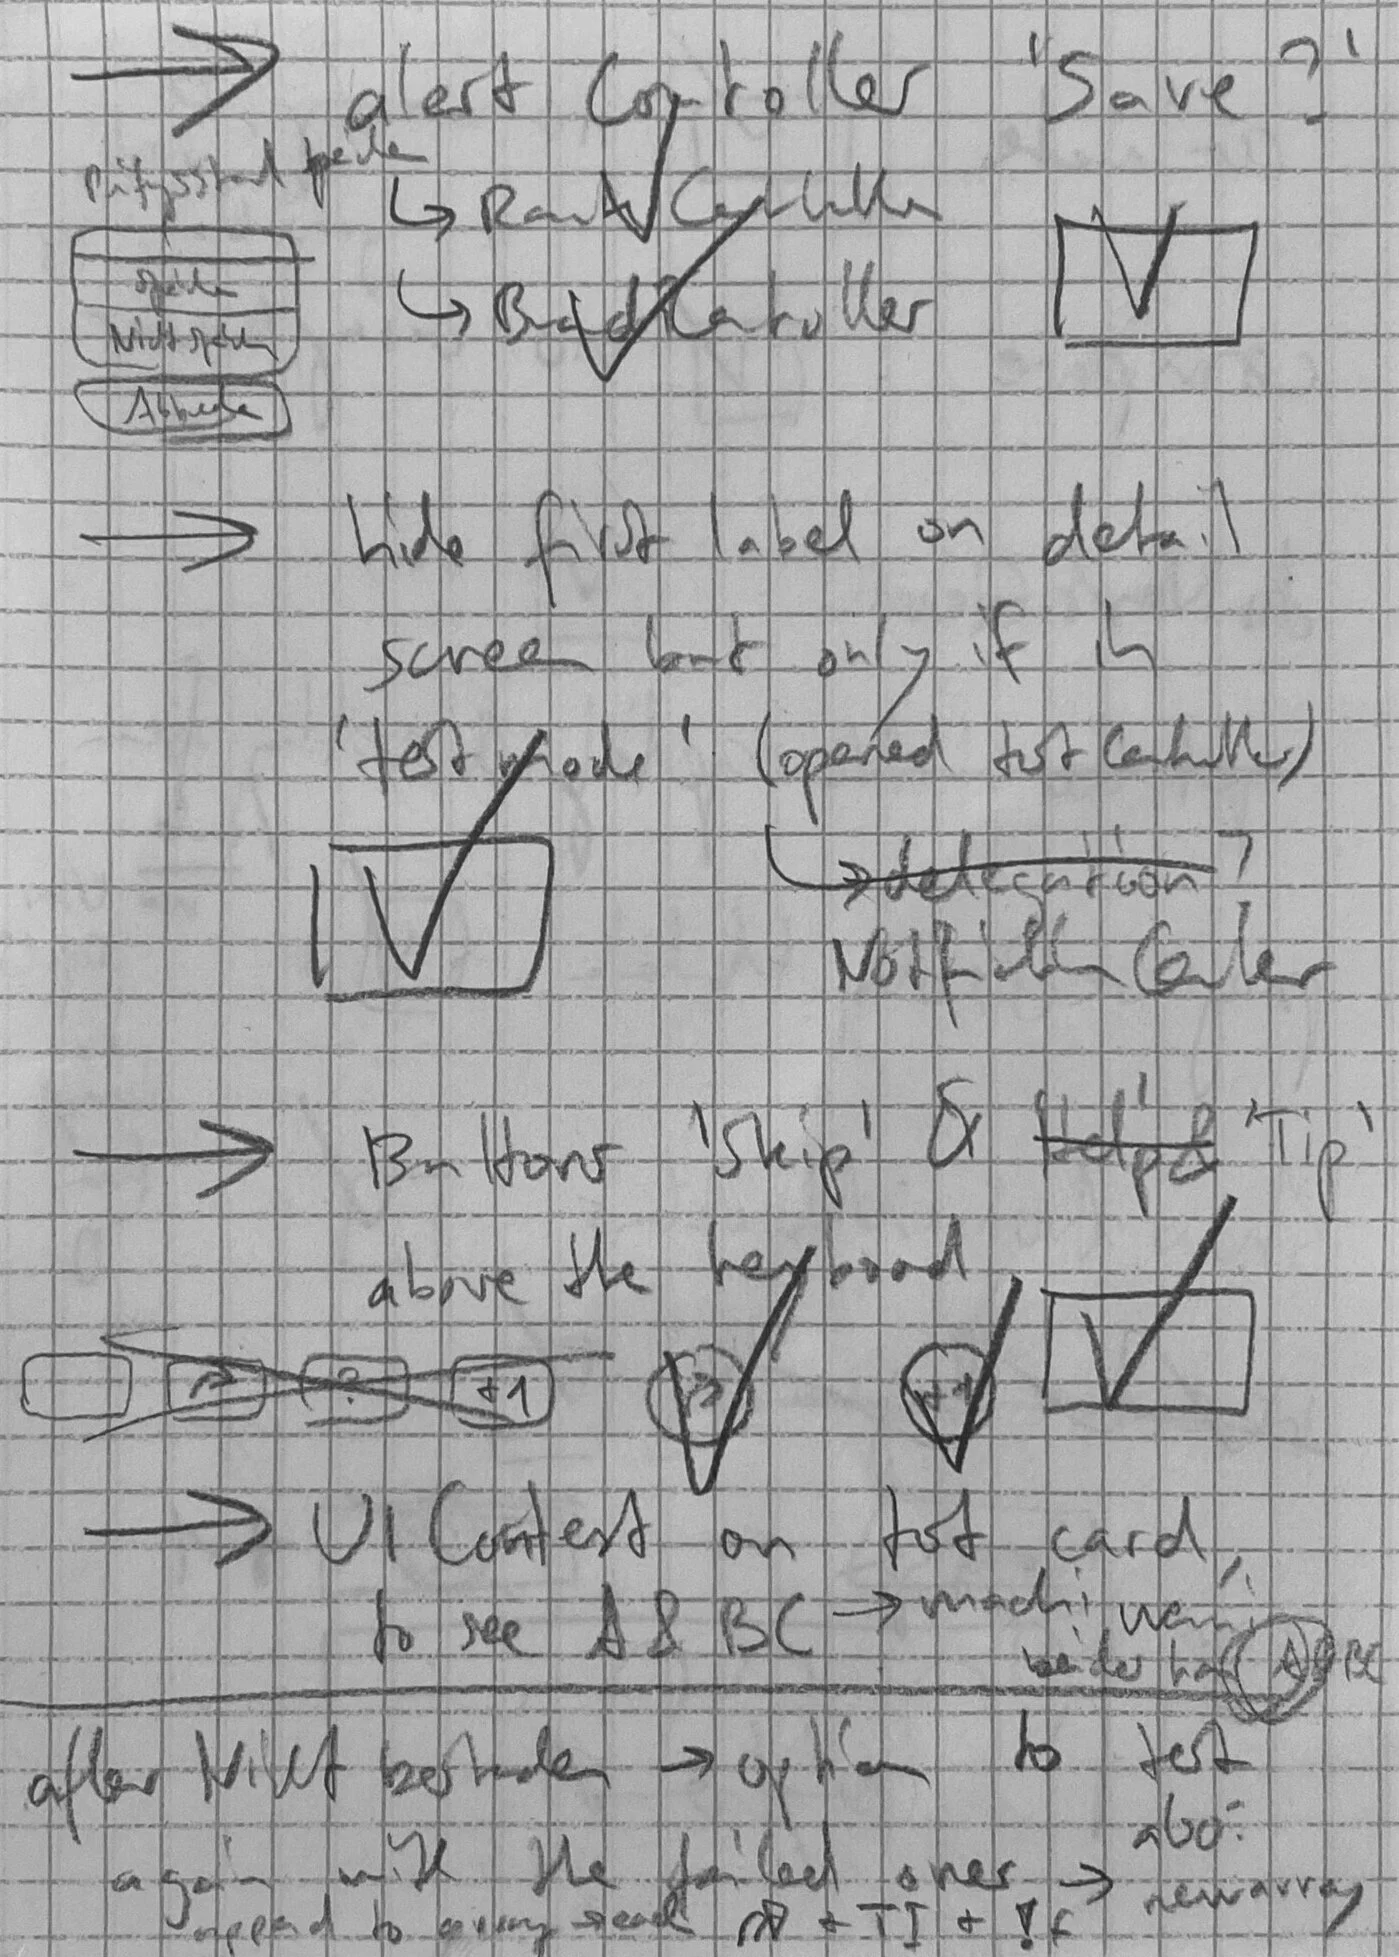 → alert Controller 'Save?'
speichern
↳ Controller
↳ Board Controller
Nicht speichern
Abbrechen
→ hide first label on detail
screen but only if in
'test mode' (opened test Controller)
↳ delegation?
Notification Center
→ Buttons 'Skip' & Help & 'Tip'
above the keyboard
?
+1
?
+1
→ UI Context on test card,
to see A & BC →
A & BC
after Nicht bestanden → option to test
again with the failed ones →
new array
append to array